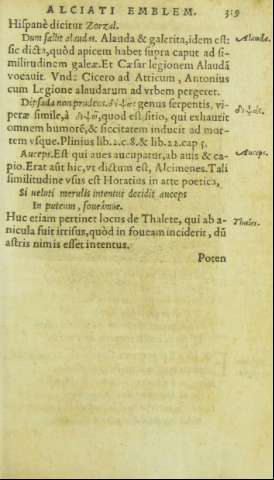 ALCIATI EMBLEM. 319
Hispanè dicitur Zorzal.
Dum fallit alaudas. Alauda & galerita, idem est: Alauda.
sic dicta, quòd apicem habet supra caput ad si-
militudinem galeæ. Et Cæsar legionem Alaudā
vocauit. Vnde Cicero ad Atticum, Antonius
cum Legione alaudarum ad vrbem pergeret.
Dipsada non prudens. διψὰς: genus serpentis, vi-
peræ simile, à διψῶ, quod est sitio, qui exhaurit
omnem humorē, & siccitate inducit ad mor-
tem vsque. Plinius lib. 2. c. 8. & lib. 22. cap 5.
Auceps. Est qui aues aucupatur, ab auis & ca- Auceps.
pio. Erat aūt hic, vt dictum est, Alcimenes. Tali
similitudine vsus est Horatius in arte poetica,
Si ueluti merulis intentus decidit auceps
In puteum, foueámue.
Huc etiam pertinet locus de Thalete, qui ab a- Thales.
nicula fuit irrisus, quòd in foueam inciderit, dū
astris nimis esset intentus.
Poten